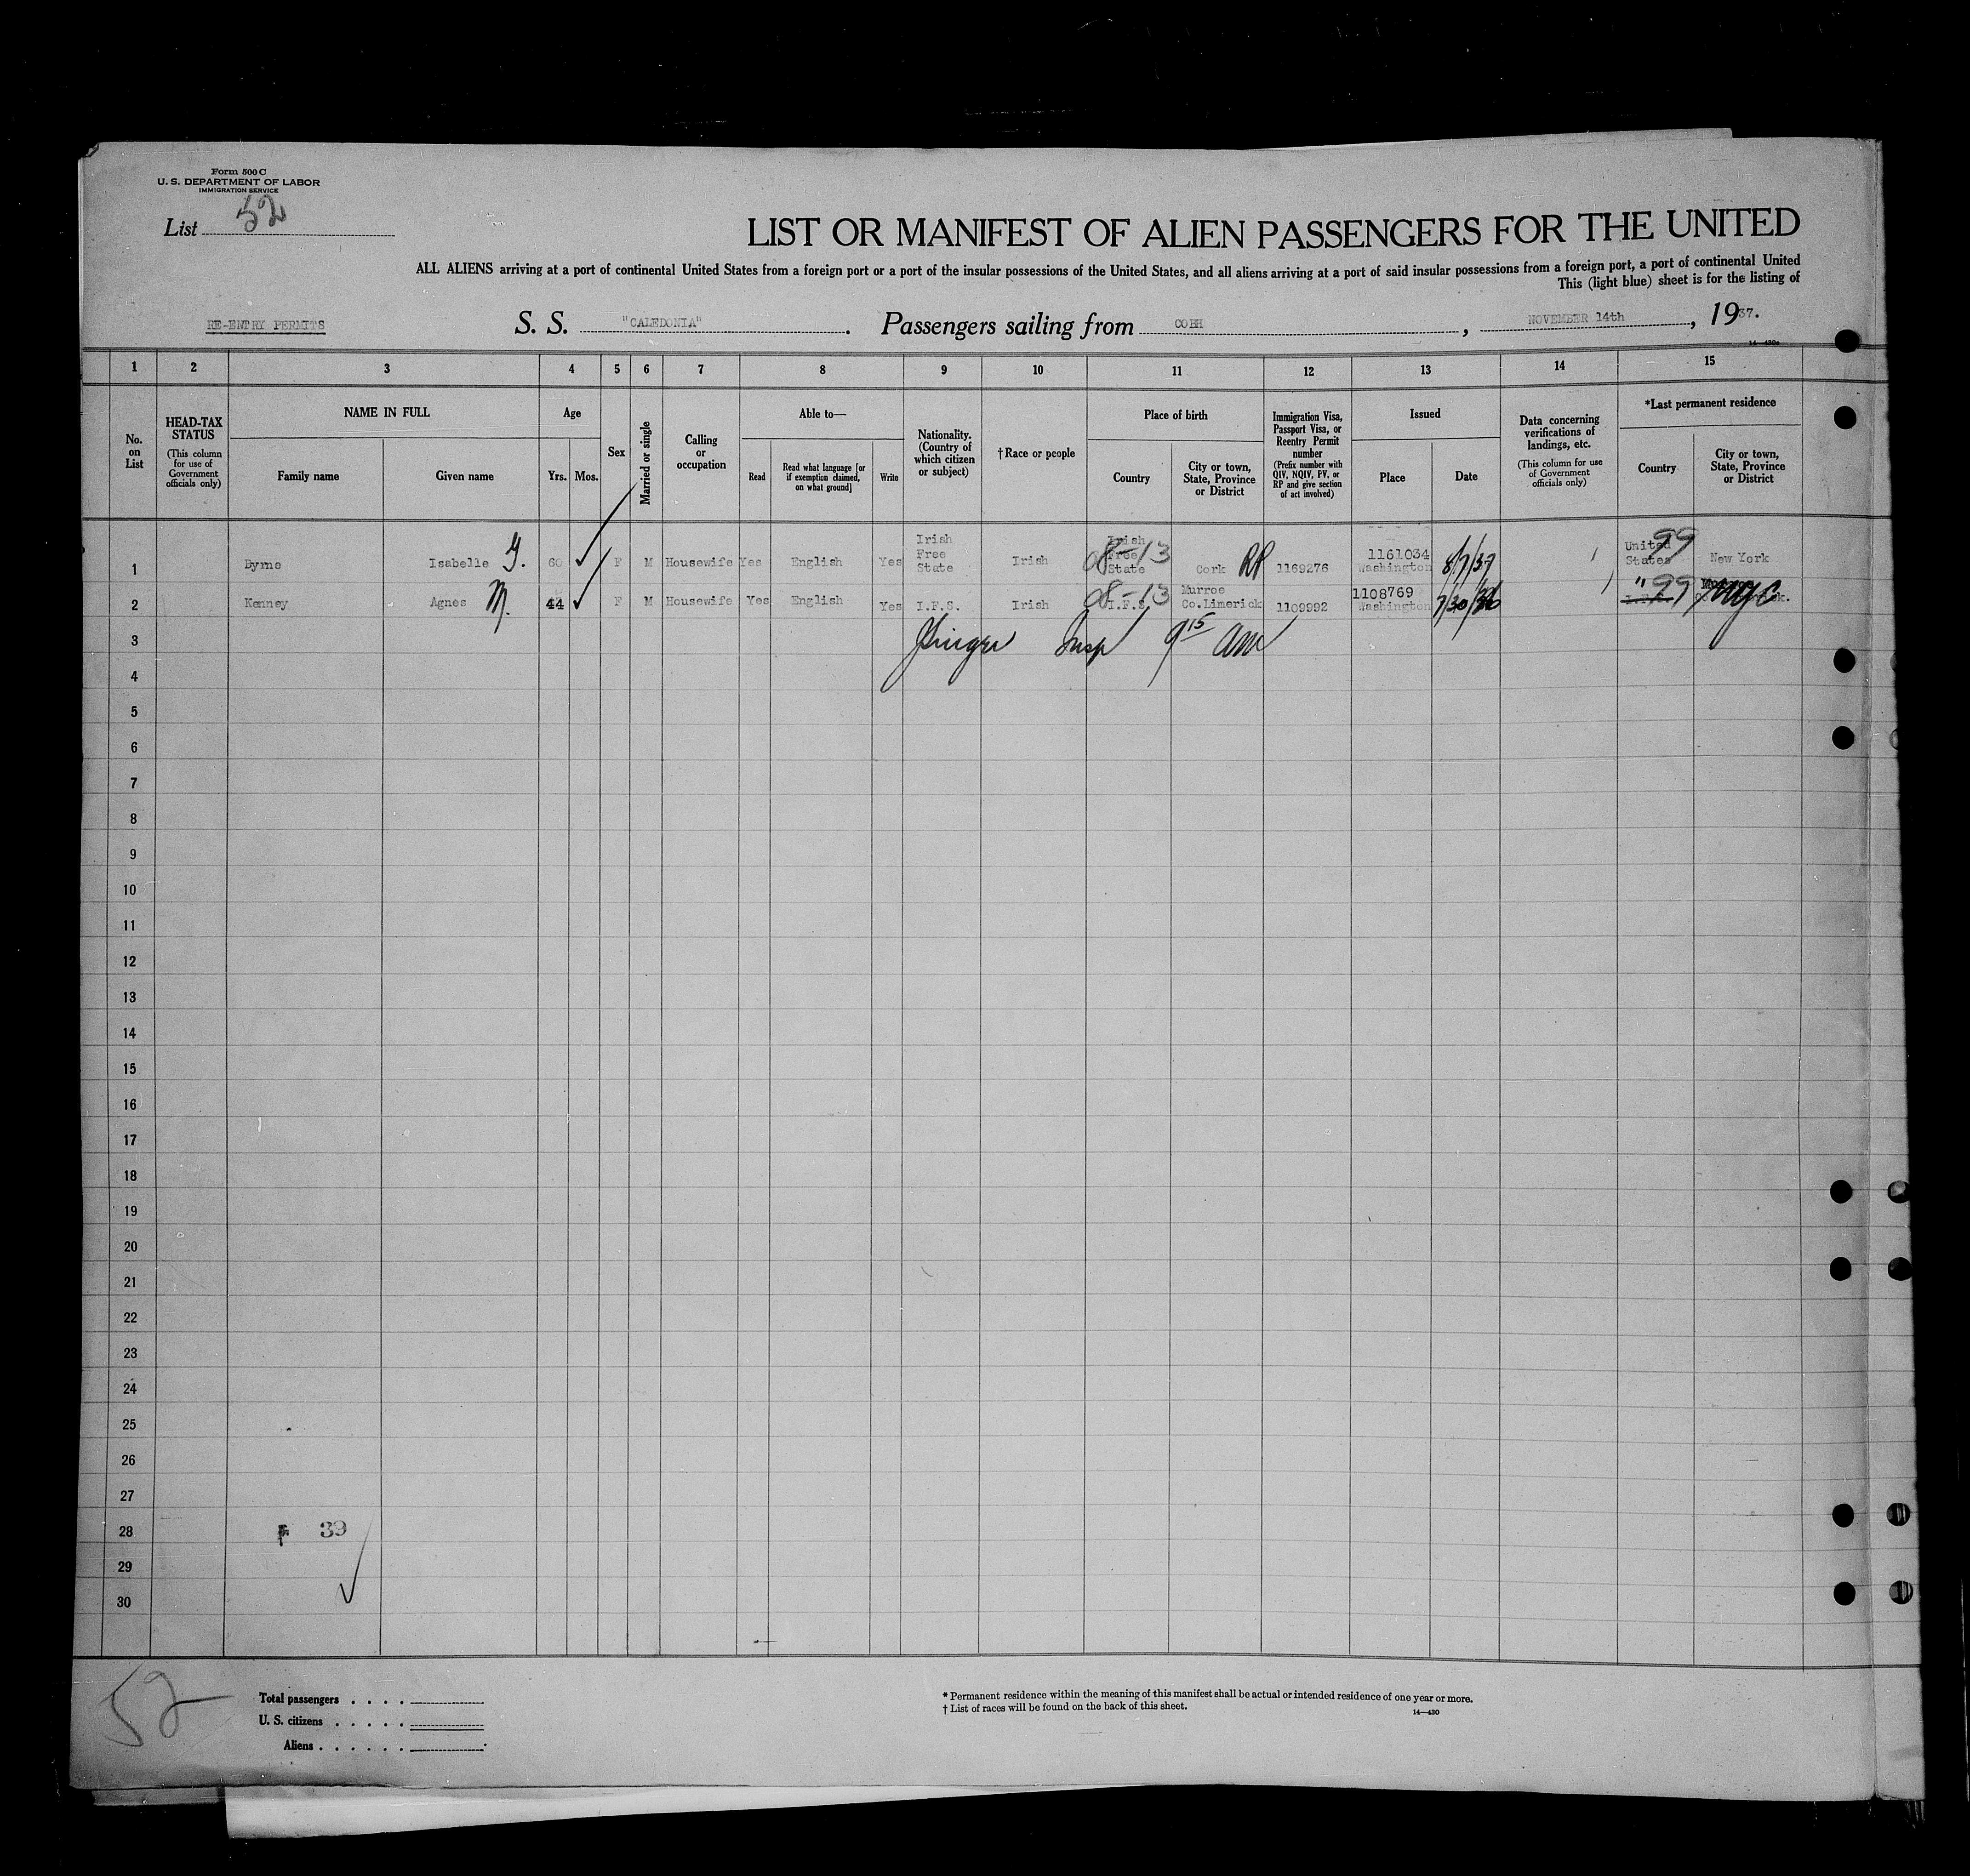 Form 500 C
U. S. DEPARTMENT OF LABOR
IMMIGRATION SERVICE
List 52
LIST OR MANIFEST OF ALIEN PASSENGERS FOR THE UNITED
ALL ALIENS arriving at a port of continental United States from a foreign port or a port of the insular possessions of the United States, and all aliens arriving at a port of said insular possessions from a foreign port, a port of continental United
This (light blue) sheet is for the listing of
RE-ENTRY PERMITS S. S. "CALEDONIA" . Passengers sailing from COBH , NOVEMBER 14th , 1937.
1 2 3 4 5 6 7 8 9 10 11 12 13 14 15
No. on List
HEAD-TAX STATUS
(This column for use of Government officials only)
NAME IN FULL
Family name Given name
Age
Yrs. Mos.
Sex
Married or single
Calling or occupation
Able to—
Read
Read what language [or if exemption claimed, on what ground]
Write
Nationality. (Country of which citizen or subject)
†Race or people
Place of birth
Country
City or town, State, Province or District
Immigration Visa, Passport Visa, or Reentry Permit number
(Prefix number with QIV, NQIV, PV, or RP and give section of act involved)
Issued
Place Date
Data concerning verifications of landings, etc.
(This column for use of Government officials only)
*Last permanent residence
Country
City or town, State, Province or District
1 Byrne Isabelle 60 F M Housewife Yes English Yes Irish Free State Irish Irish Free State 08-13 Cork RP 1169276 1161034 Washington 8/7/37 United States 99 New York
2 Kenney Agnes M. 44 F M Housewife Yes English Yes I.F.S. Irish I.F.S. 08-13 Murroe Co.Limerick 1109992 1108769 Washington 7/30/36 " 99 NYC
3 Insp 9 15 AM
4
5
6
7
8
9
10
11
12
13
14
15
16
17
18
19
20
21
22
23
24
25
26
27
28 F 39
29
30
52
Total passengers . . . .
U. S. citizens . . . . .
Aliens . . . . . .
* Permanent residence within the meaning of this manifest shall be actual or intended residence of one year or more.
† List of races will be found on the back of this sheet.
14—430